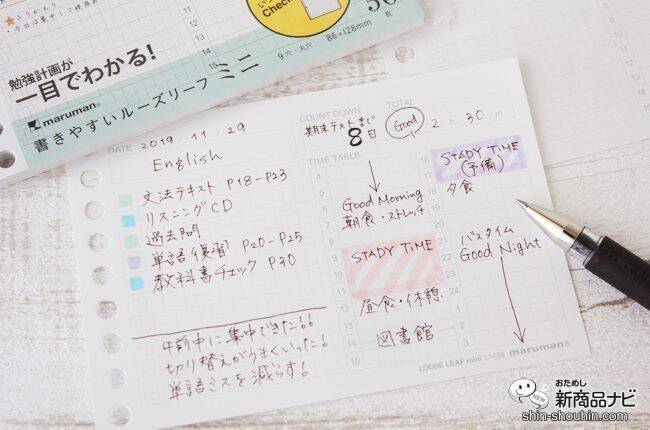 ふりかえり
Check
50
9穴・丸穴 86×128mm
勉強計画が
一目でわかる!
maruman®
書きやすいルーズリーフ ミニ
DATE 2019. 11. 29
English
文法テキスト P18-P23
リスニングCD
過去問
単語復習 P20-P25
教科書チェック P30
午前中に集中できた!!
切り替えがうまくいった!
単語ミスを減らす!
COUNT DOWN
期末テストまで
8日
TOTAL
Good 2 h 30 m
TIME TABLE
4
5
6
Good Morning
7
朝食・ストレッチ
8
9
STADY TIME
10
11
12
昼食・休憩
13
14
図書館
15
16
STADY TIME
(予備)
17
18
夕食
19
20
バスタイム
21
Good Night
22
23
24
1
2
3
LOOSE LEAF mini L1438 maruman®
NEW
おためし
新商品ナビ
shin-shouhin.com